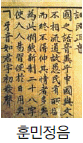 國之語音異乎中國與文字
不相流通故愚民有所欲言
而終不得伸其情者多矣予
爲此憫然新制二十八字欲
使人人易習便於日用耳
ㄱ牙音如君字初發聲
훈민정음